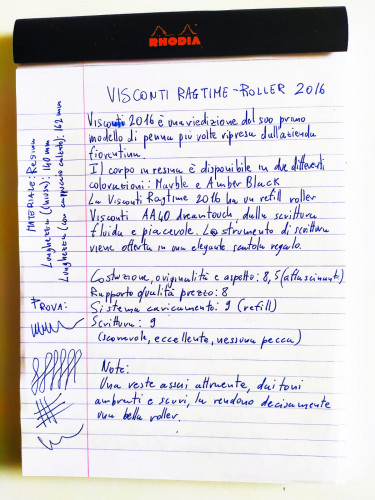 RHODIA
VISCONTI RAGTIME-ROLLER 2016
Visconti 2016 è una riedizione del suo primo
modello di penna più volte ripresa dall'azienda
fiorentina.
Il corpo in resina è disponibile in due differenti
colorazioni: Marble e Amber Black
La Visconti Ragtime 2016 ha un refill roller
Visconti AA40 dreamtouch, dalla scrittura
fluida e piacevole. Lo strumento di scrittura
viene offerto in una elegante scatola regalo.
MATERIALE: Resina
Lunghezza (chiusa): 140 mm
Lunghezza (con cappuccio calzato): 162 mm
Costruzione, originalità e aspetto: 8,5 (affascinante)
Rapporto qualità prezzo: 8
Sistema caricamento: 9 (refill)
Scrittura: 9
(scorrevole, eccellente, nessuna pecca)
PROVA:
Note:
Una veste assai attraente, dai toni
ambrati e scuri, la rendono decisamente
una bella roller.